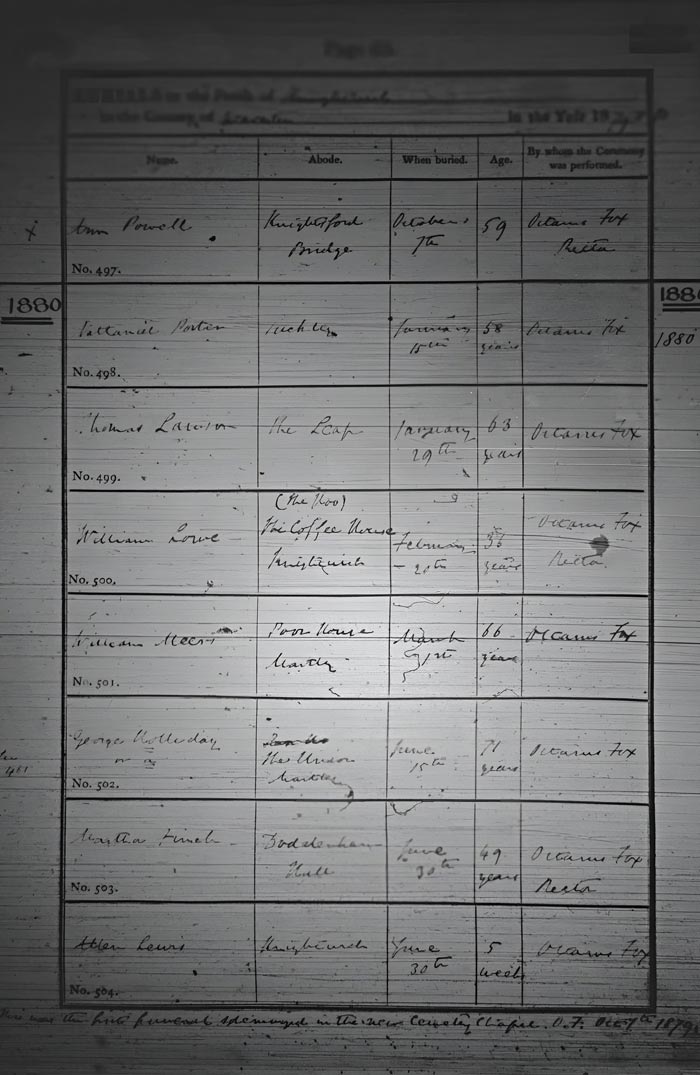 Page 63.
BURIALS in the Parish of Knightwick
in the County of Worcester in the Year 18
Name. Abode. When buried. Age. By whom the Ceremony was performed.
x Ann Powell Knightsford October 59 Octavius Fox
Bridge 7th Rector
No. 497.
1880 1880
Nathaniel Porter January 58 Octavius Fox 1880
15th years
No. 498.
Thomas Lawson The Leap January 63 Octavius Fox
29th years
No. 499.
(The Hoo)
William Lowe The Coffee House February Octavius Fox
Knightwick 20th years Rector
No. 500.
William Meers Poor House March 66 Octavius Fox
Martley 1st years
No. 501.
George Holliday June 71 Octavius Fox
or a The Union 15th years
461 Martley
No. 502.
Martha Finch Doddenham June 49 Octavius Fox
Hill 30th years Rector
No. 503.
Allen Lewis Knightwick June 5 Octavius Fox
30th weeks
No. 504.
This was the first funeral in the new Cemetery Chapel. O.F. Oct 7th 1879